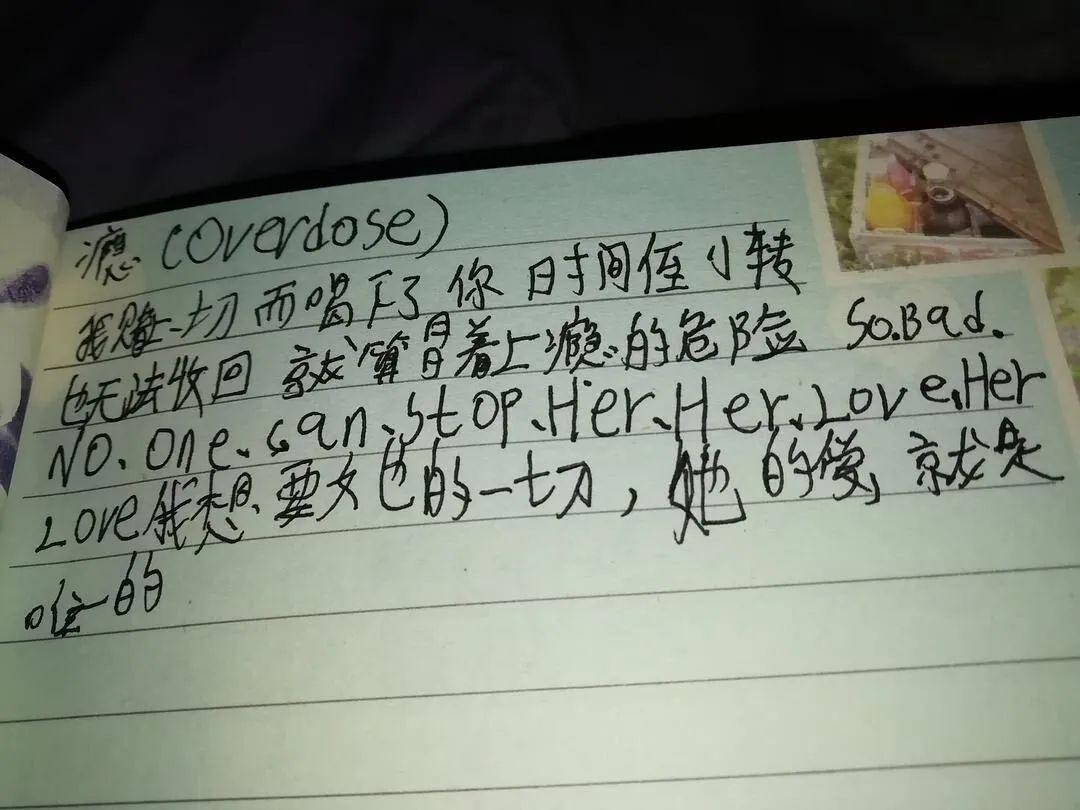 瘾(Overdose)
我赌上一切而喝下了你 时间侄小转
也无法收回 就算冒着上瘾的危险 So.Bad.
NO.One.can.stop.Her.Her.Love.Her
Love我想要她的一切,她的爱就是
唯一的